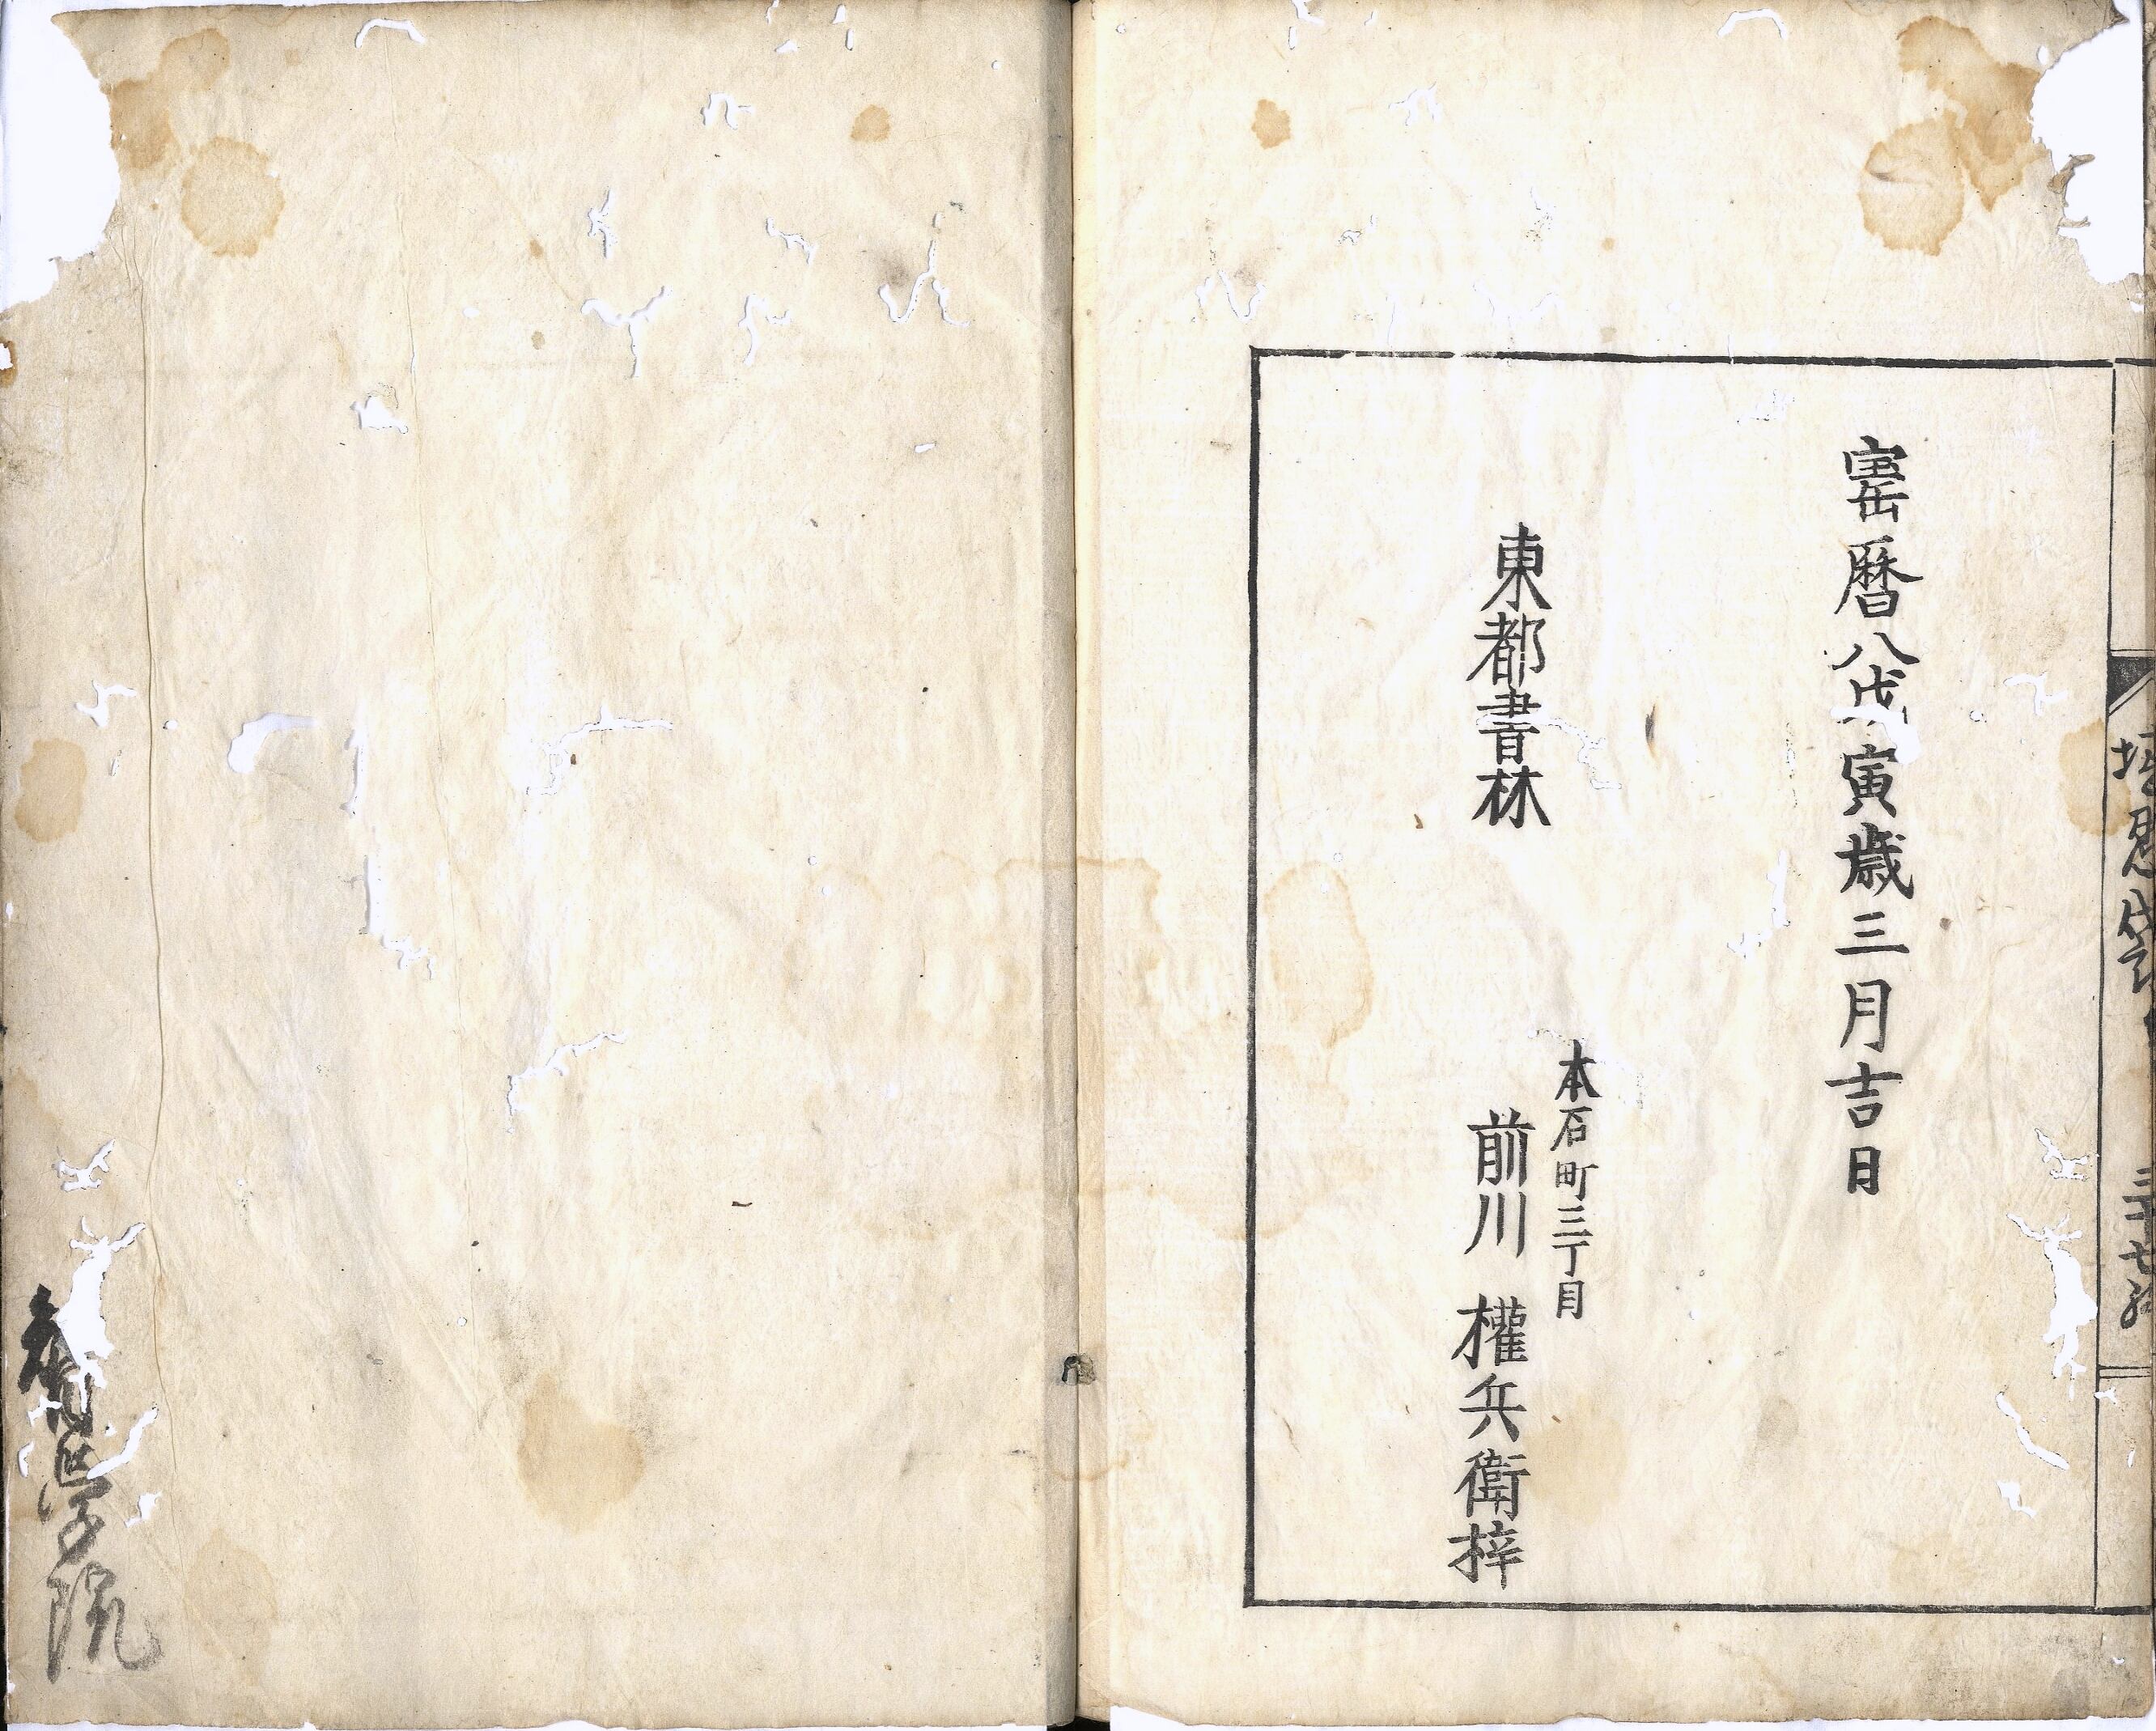 寚暦八戊寅歳三月吉日
東都書林
本石町三丁目
前川 權兵衛梓
学院